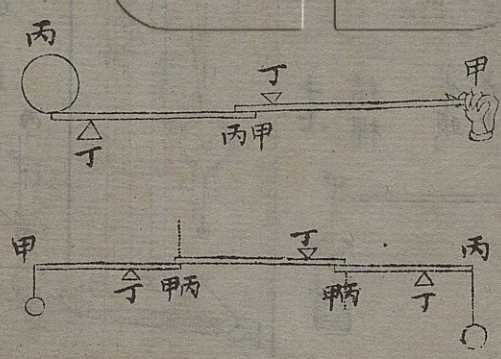 丙
丁
甲
丁
丙甲
甲
丁
丙
丁
甲丙
甲丙
丁